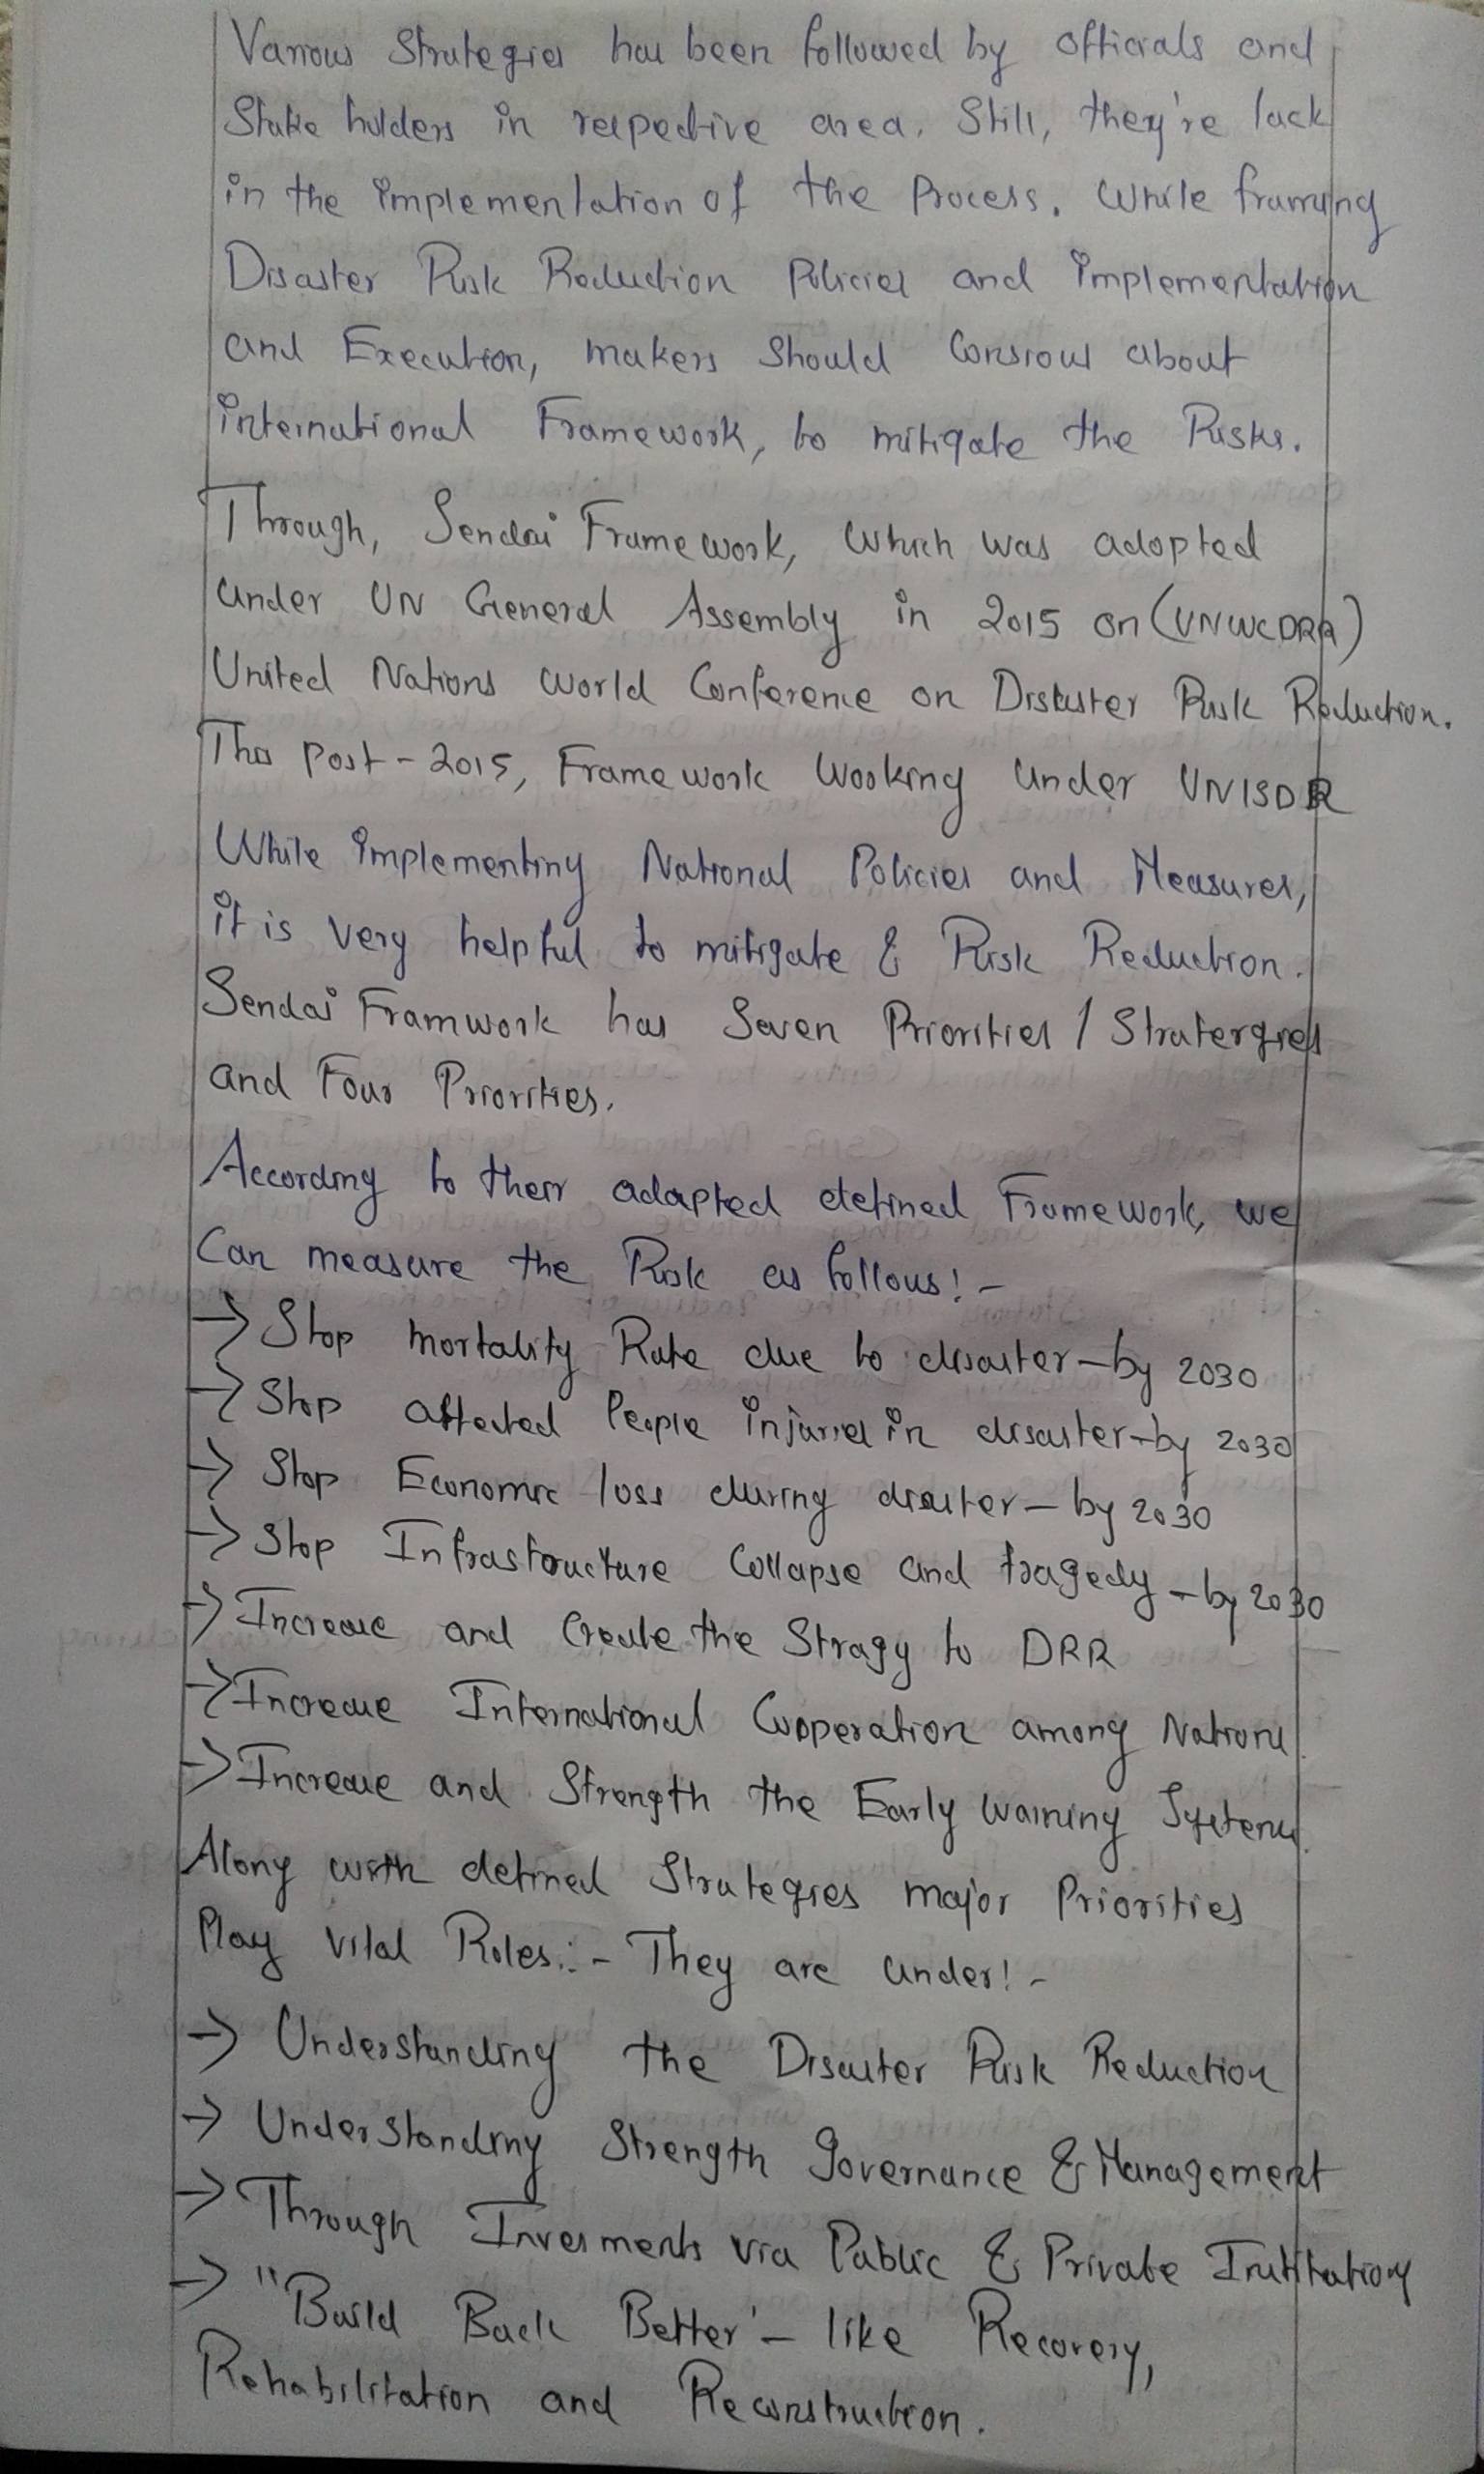 Various Strategies has been followed by officials and
Stake holders in respective area. Still, they're lack
in the implementation of the Process. While framing
Disaster Risk Reduction Policies and implementation
and Execution, makers Should Consious about
international Framework, to mitigate the Risks.
Through, Sendai Framework, Which was adopted
under UN General Assembly in 2015 on (UNWCDRR)
United Nations World Conference on Disaster Risk Reduction.
The post-2015, Framework Working under UNISDR
While implementing National Policies and Measures,
it is very helpful to mitigate & Risk Reduction.
Sendai Framwork has Seven Priorities / Stratergies
and Four Priorities.
According to their adapted defined Framework, we
Can measure the Risk as follows! -
→ Stop mortality Rate due to disaster - by 2030
→ Stop affected People injuries in disaster - by 2030
→ Stop Economic loss during disaster - by 2030
→ Stop Infrastructure Collapse and tragedy - by 2030
→ Increase and Create the Stragy to DRR
→ Increase International Cooperation among Nations
→ Increase and Strength the Early Warning Systems.
Along with defined Strategies major Priorities
Play vital Roles:- They are under! -
→ Understanding the Disaster Risk Reduction
→ Understanding Strength Governance & Management
→ Through Invesments via Public & Private
→ "Build Back Better' - like Recovery,
Rehabilitation and Reconstruction.